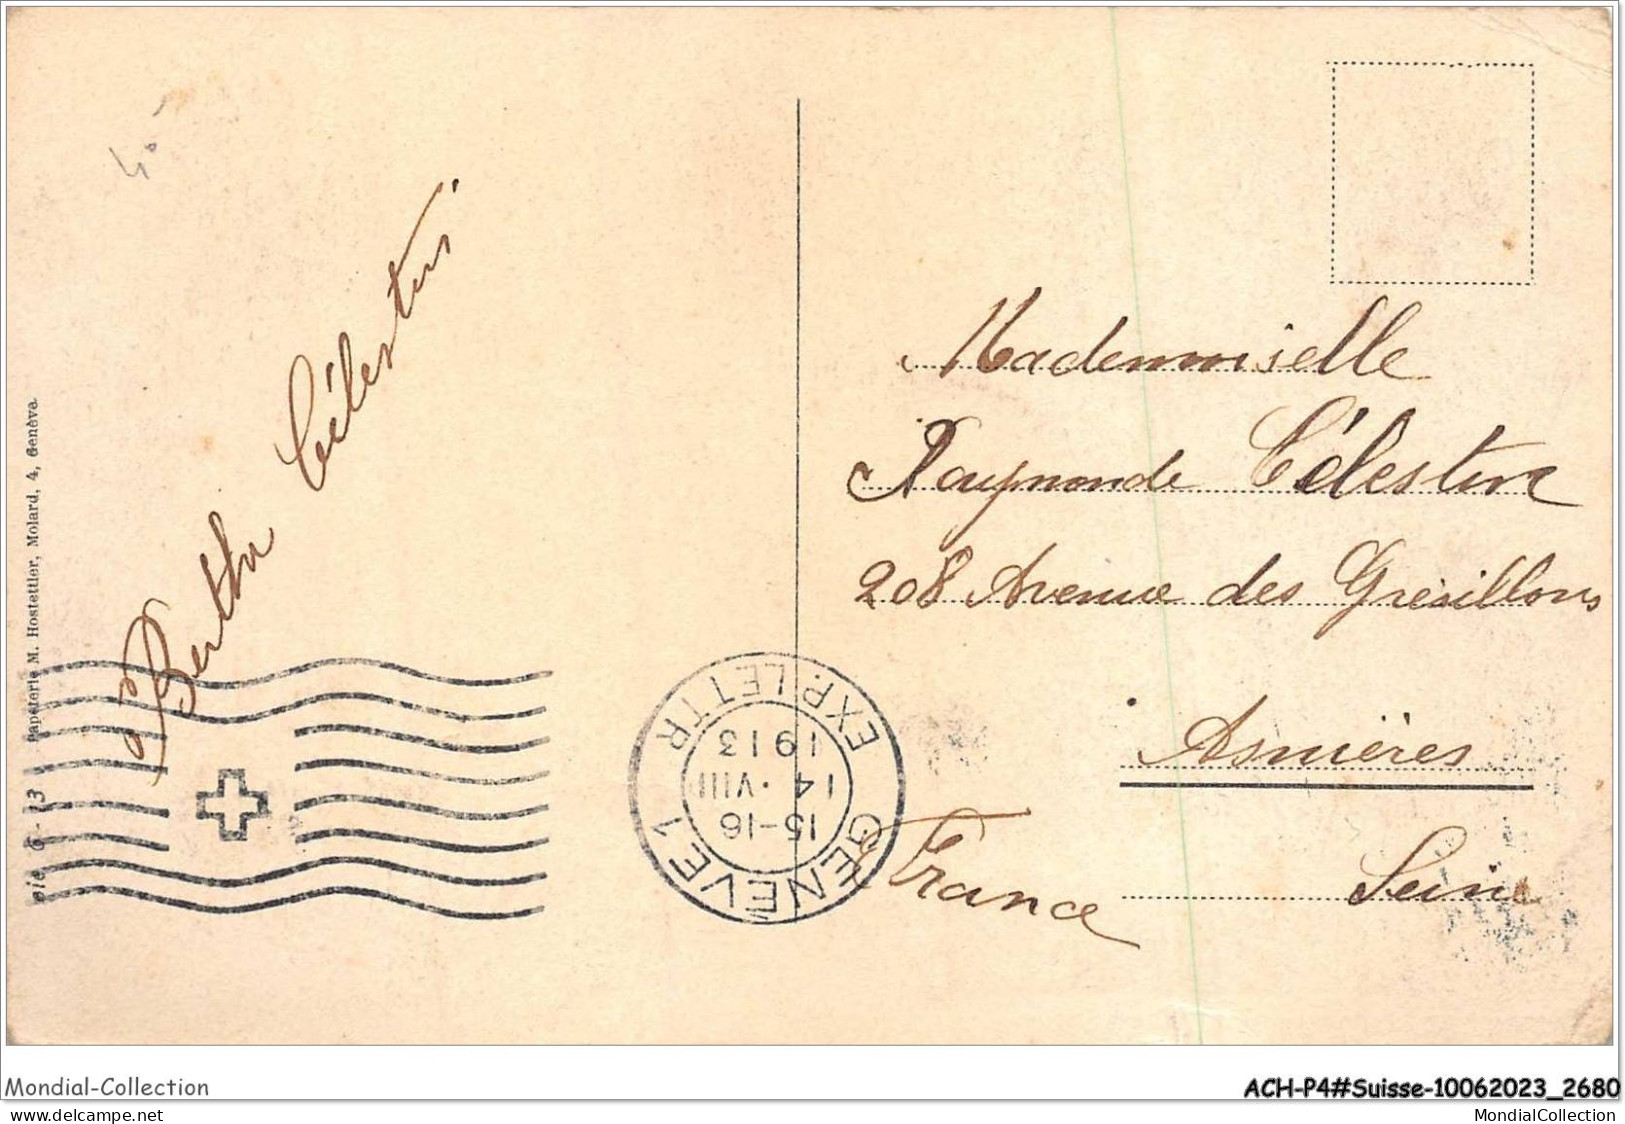 40
Berthe Célestin
Papeterie M. Hostettler, Molard, 4, Genève.
6 - 13
GENÈVE 1
EXP. LETTR
15-16
14 · VIII
1913
Mademoiselle
Raymonde Célestin
208 Avenue des Grésillons
Asnières
Seine
France
Mondial-Collection
ACH-P4#Suisse-10062023_2680
MondialCollection
www.delcampe.net